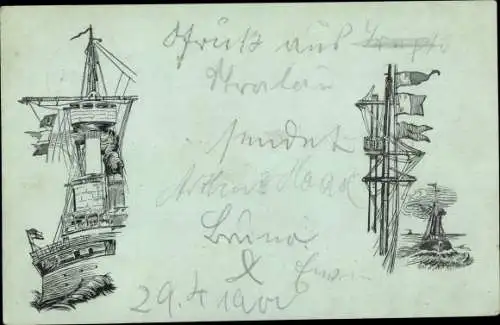 Gruß aus
Stralau
sendet
Arthur Haack
Bruno
&
29.4.1900